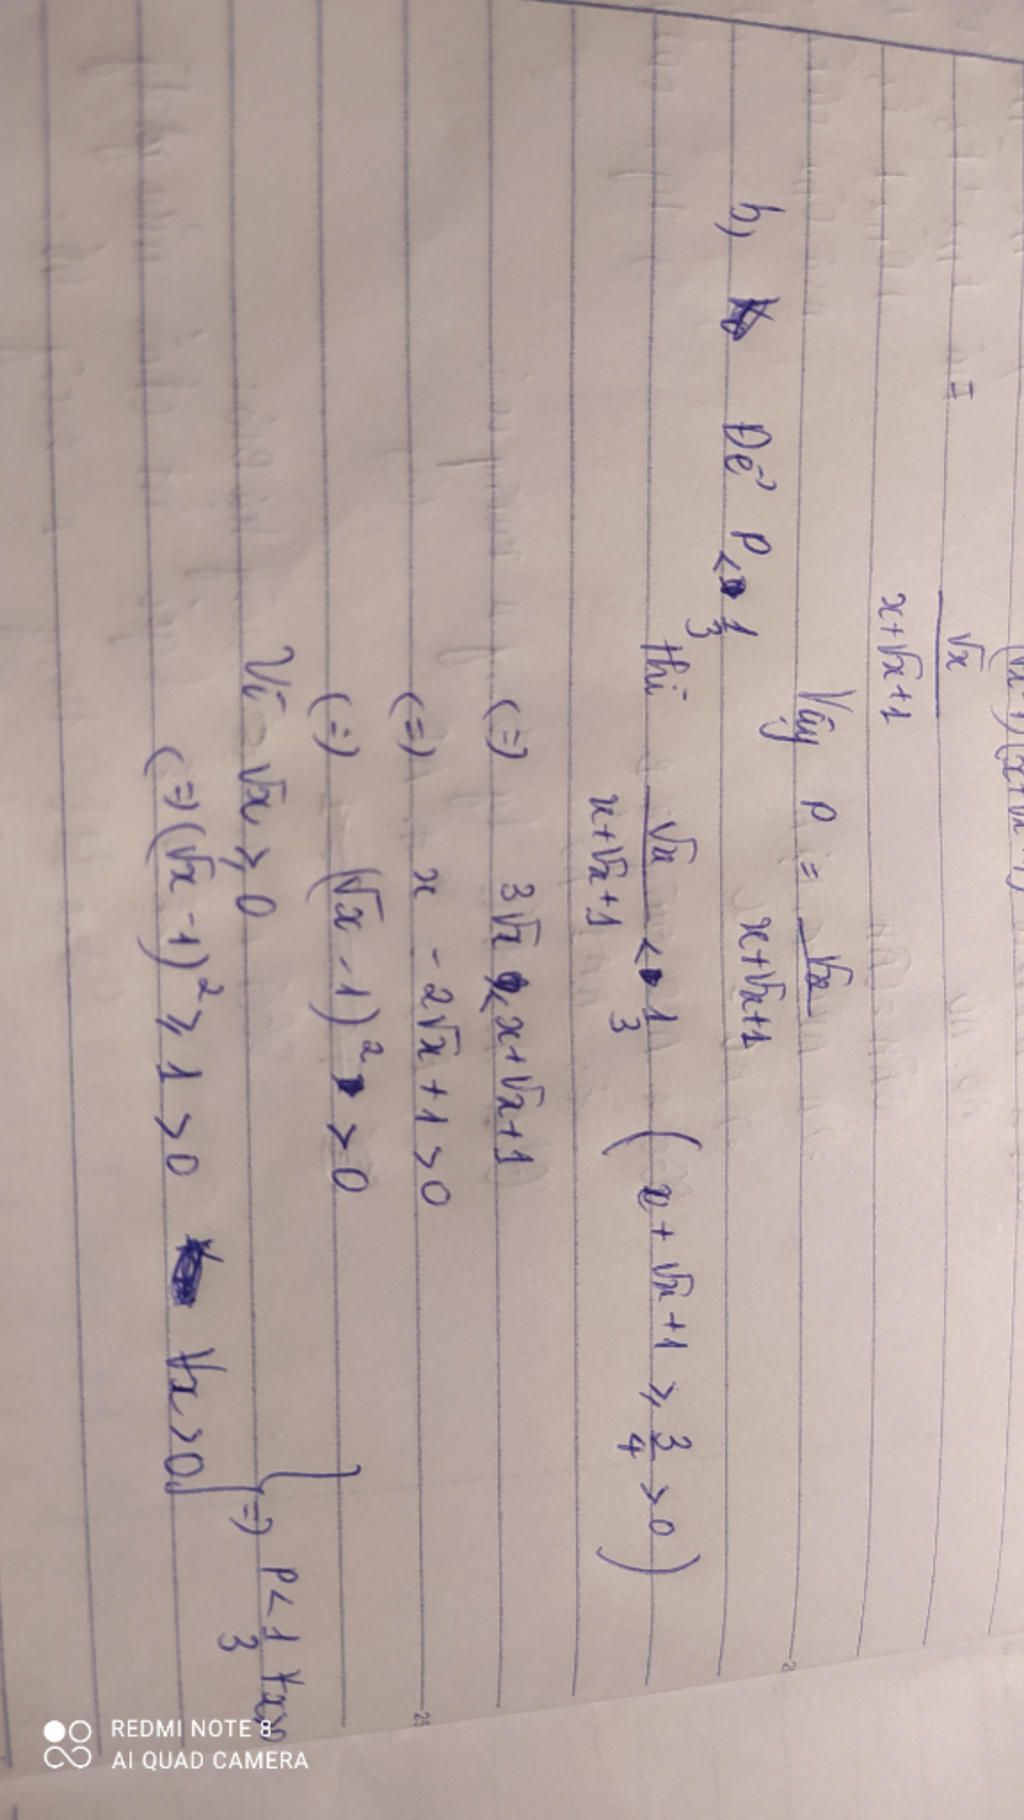 (√x-1)(x+√x+1)
= √x / x+√x+1
Vậy P = √x / x+√x+1
b, Để P < 1/3
thì √x / x+√x+1 < 1/3 ( x+√x+1 ⩾ 3/4 > 0 )
(=) 3√x < x+√x+1
(=) x - 2√x + 1 > 0
(=) (√x - 1)² > 0
Vì √x ⩾ 0
(=) (√x - 1)² ⩾ 1 > 0 ∀x > 0
=) P < 1/3 ∀x>0
25
REDMI NOTE 8
AI QUAD CAMERA